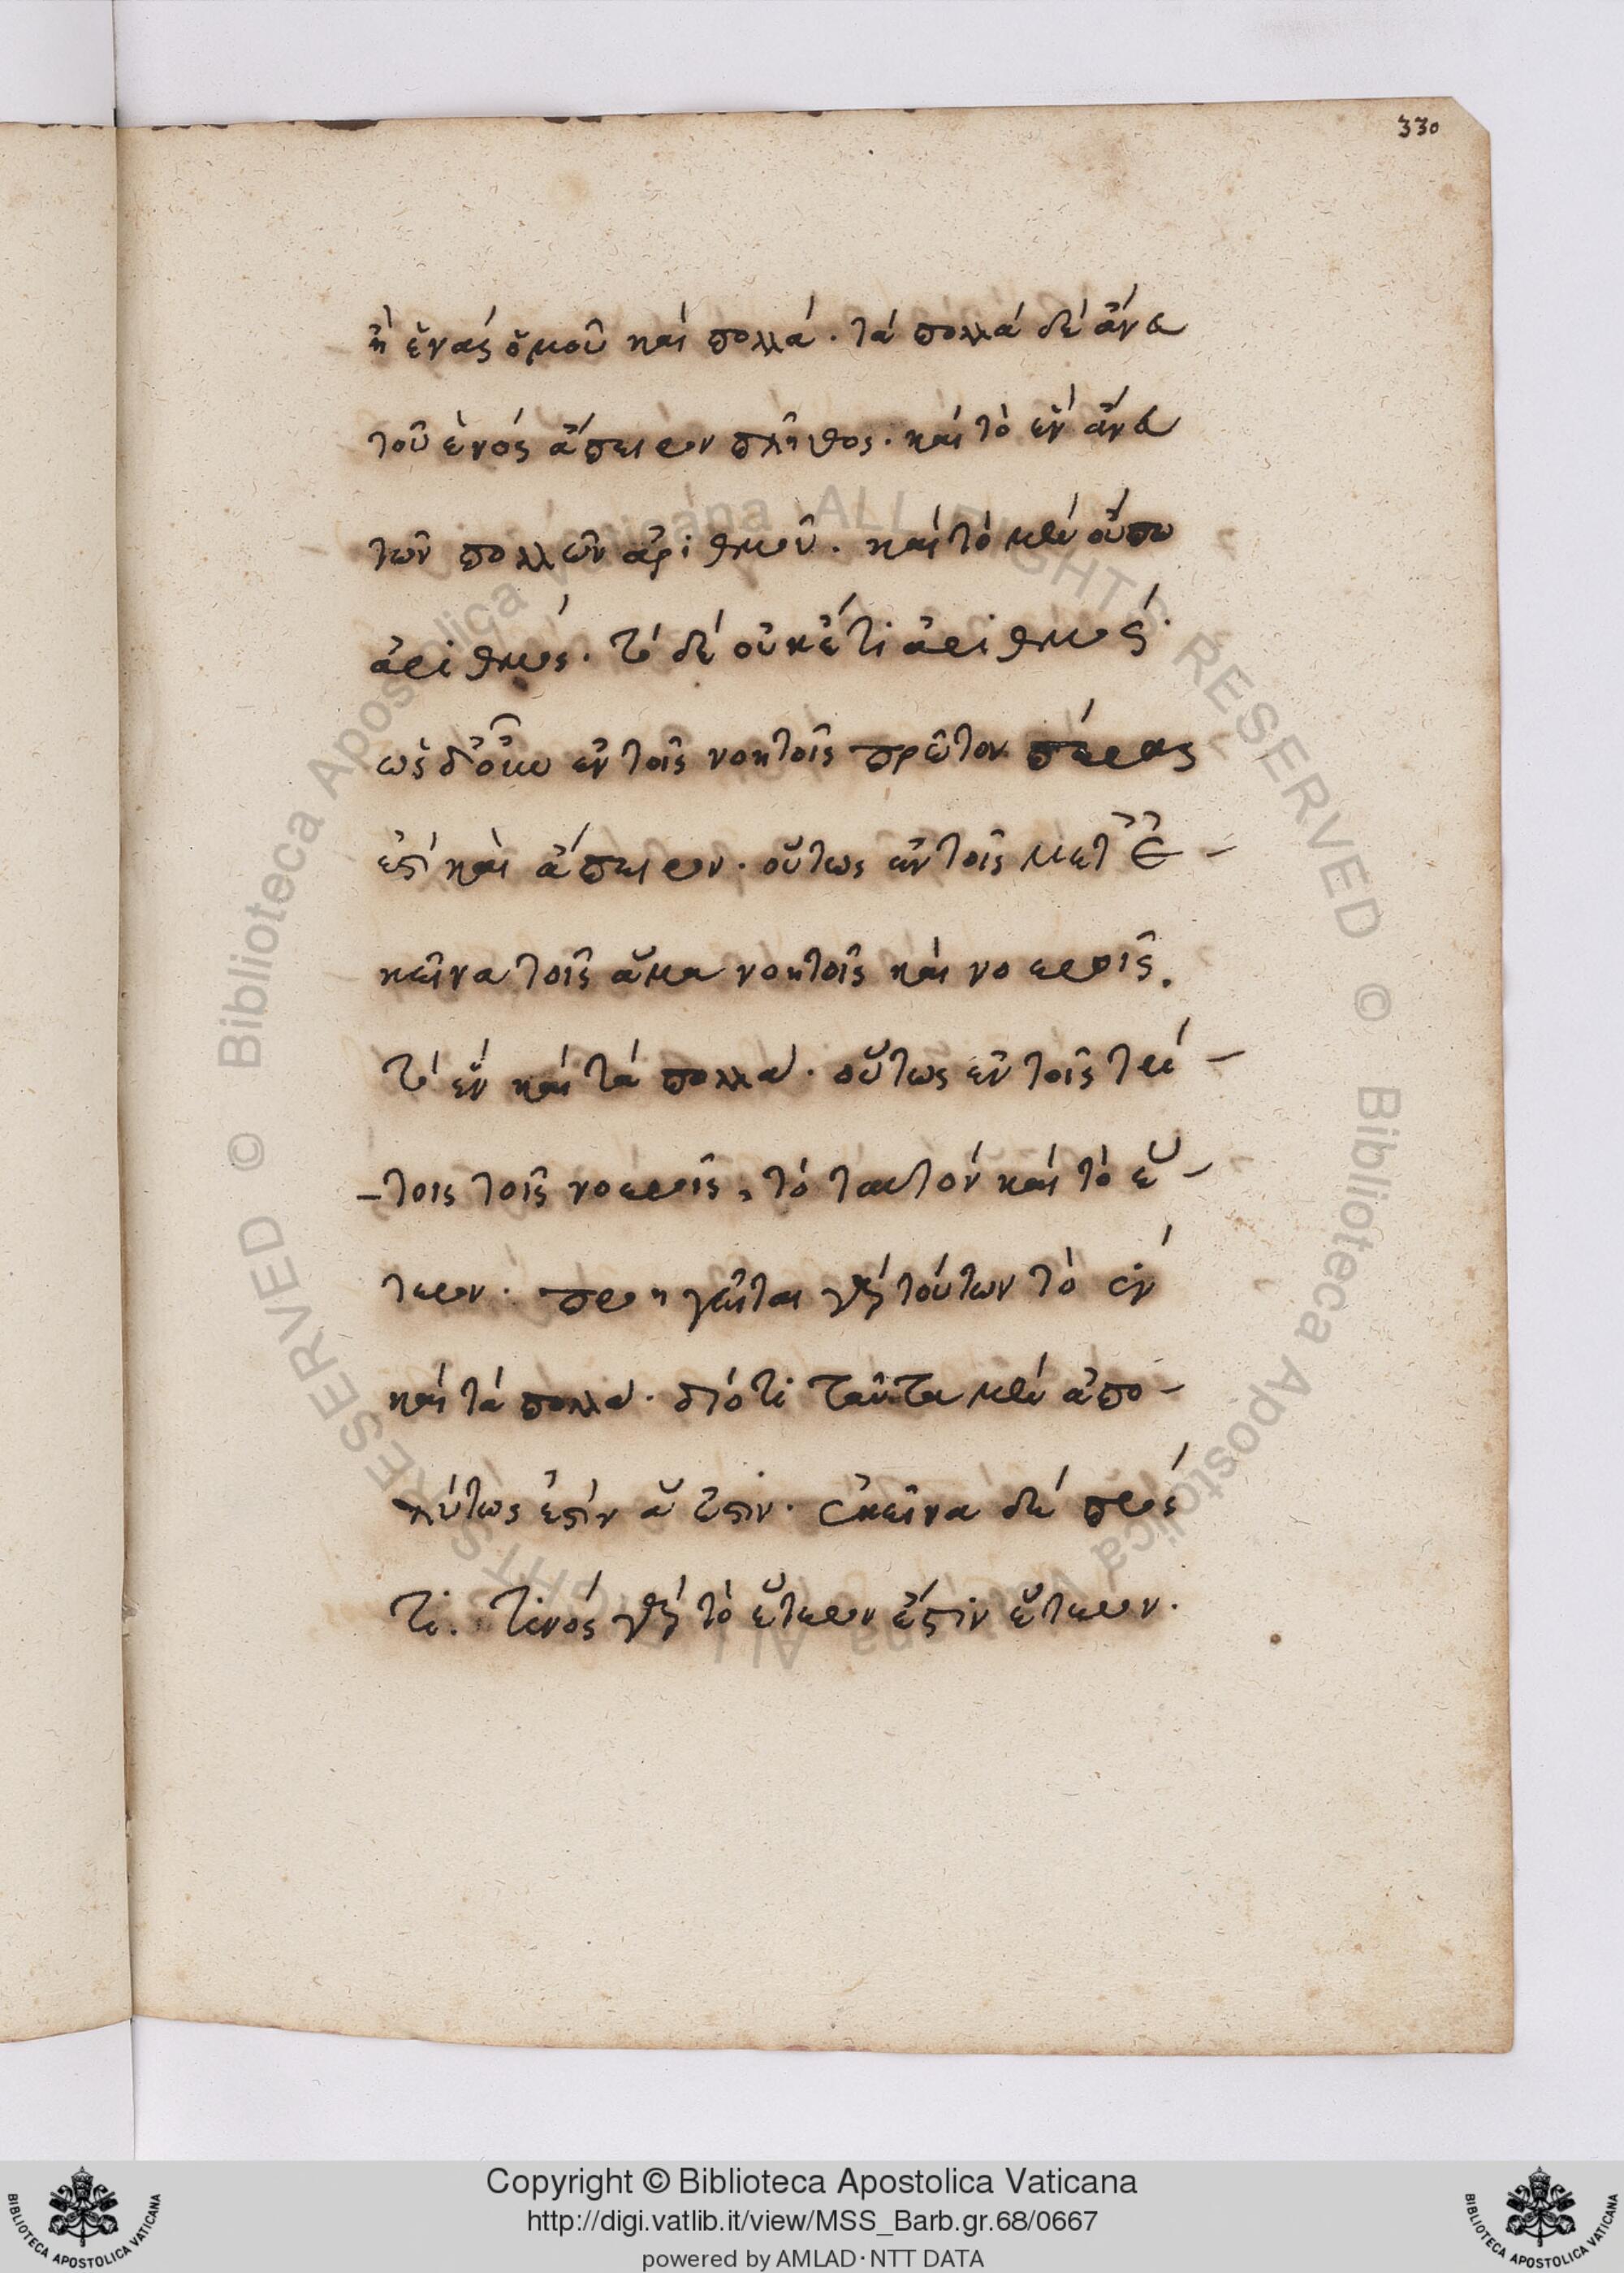 330
ἢ ἑνὰς ὁμοῦ καὶ πολλά. τὰ πολλὰ δὲ ἄνευ
τοῦ ἑνὸς ἄπειρον πλῆθος. καὶ τὸ ἓν ἄνευ
τῶν πολλῶν ἀριθμοῦ. καὶ τὸ μὲν οὔπω
ἀριθμός. τὸ δὲ οὐκέτι ἀριθμός.
ὡς ἐν τοῖς νοητοῖς πρῶτον πέρας
ἐστὶ καὶ ἄπειρον. οὕτως ἐν τοῖς μετ' ἐ-
κεῖνα τοῖς ἅμα νοητοῖς καὶ νοεροῖς.
τὸ ἓν καὶ τὰ πολλά. οὕτως ἐν τοῖς τρί-
-τοις τοῖς νοεροῖς, τὸ ταυτὸν καὶ τὸ ἕ-
τερον. προηγεῖται γὰρ τούτων τὸ ἓν
καὶ τὰ πολλά. διότι ταῦτα μὲν ἀπο-
λύτως ἐστὶν ἅ ἐστιν. ἐκεῖνα δὲ πρός
τι. τινὸς γὰρ τὸ ἕτερον ἐστὶν ἕτερον.
Copyright © Biblioteca Apostolica Vaticana
http://digi.vatlib.it/view/MSS_Barb.gr.68/0667
powered by AMLAD·NTT DATA
BIBLIOTECA APOSTOLICA VATICANA
BIBLIOTECA APOSTOLICA VATICANA
© Biblioteca Apostolica Vaticana ALL RIGHTS RESERVED
© Biblioteca Apostolica Vaticana ALL RIGHTS RESERVED